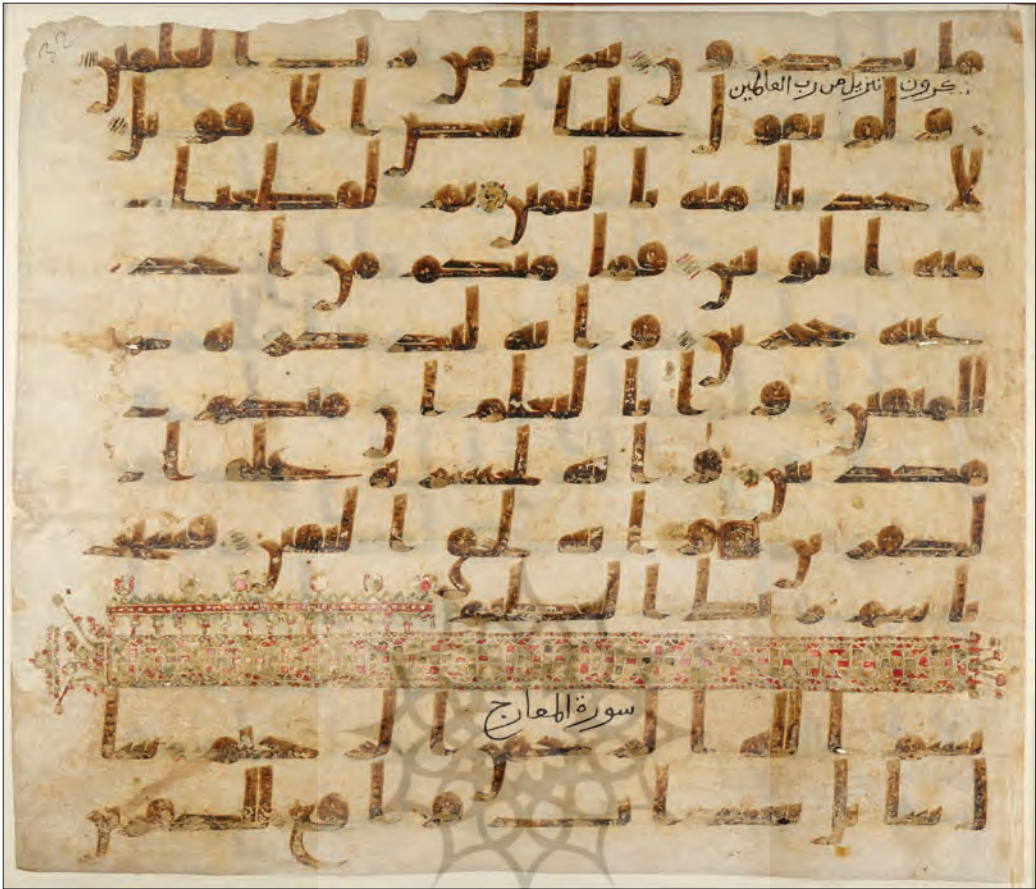 ما تذكرون تنزيل من رب العلمين
كرون تنزيل من رب العالمين
ولو تقول علينا بعض الاقويل
لاخذنا منه باليمين ثم لقطعنا
منه الوتين فما منكم من احد
عنه حجزين وانه لتذكرة
للمتقين وانا لنعلم ان منكم
مكذبين وانه لحسرة على ا
لكفرين وانه لحق اليقين فسبح
باسم ربك العظيم
سورة المعارج
بسم الله الرحمن الرحيم سا
ل سايل بعذاب واقع للكفرين